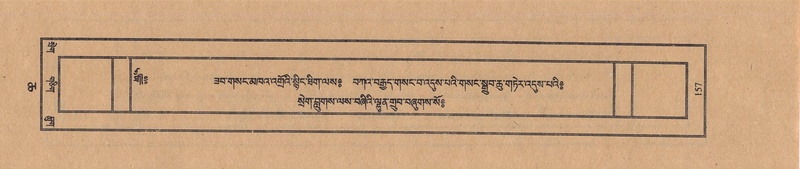 ཟབ་གསང་མཁའ་འགྲོའི་སྙིང་ཐིག་ལས༔ བཀའ་བརྒྱད་གསང་བ་འདུས་པའི་གསང་སྒྲུབ་ཆུ་གཏེར་འདུས་པའི༔
སྲེག་བླུགས་ལས་བཞིའི་ལྷུན་གྲུབ་བཞུགས་སོ༔
157